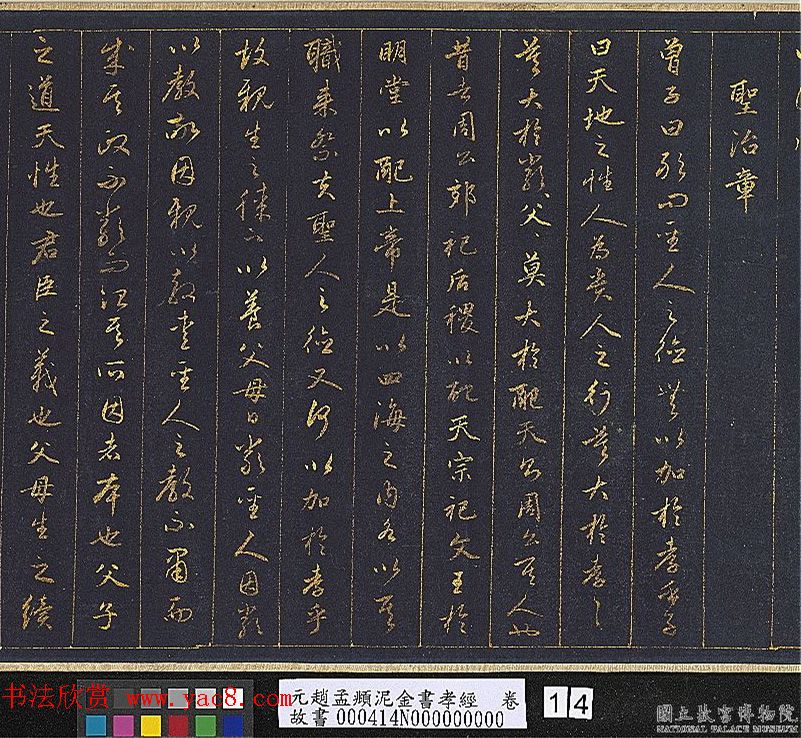 聖治章
曾子曰敢問聖人之德無以加於孝乎子
曰天地之性人為貴人之行莫大於孝孝
莫大於嚴父父莫大於配天則周公其人也
昔者周公郊祀后稷以配天宗祀文王於
明堂以配上帝是以四海之內各以其
職來祭夫聖人之德又何以加於孝乎
故親生之膝下以養父母日嚴聖人因嚴
以教敬因親以教愛聖人之教不肅而
成其政不嚴而治其所因者本也父子
之道天性也君臣之義也父母生之續
书法欣赏 www.yac8.com
元趙孟頫泥金書孝經 卷
故書000414N000000000
14
國立故宮博物院
NATIONAL PALACE MUSEUM